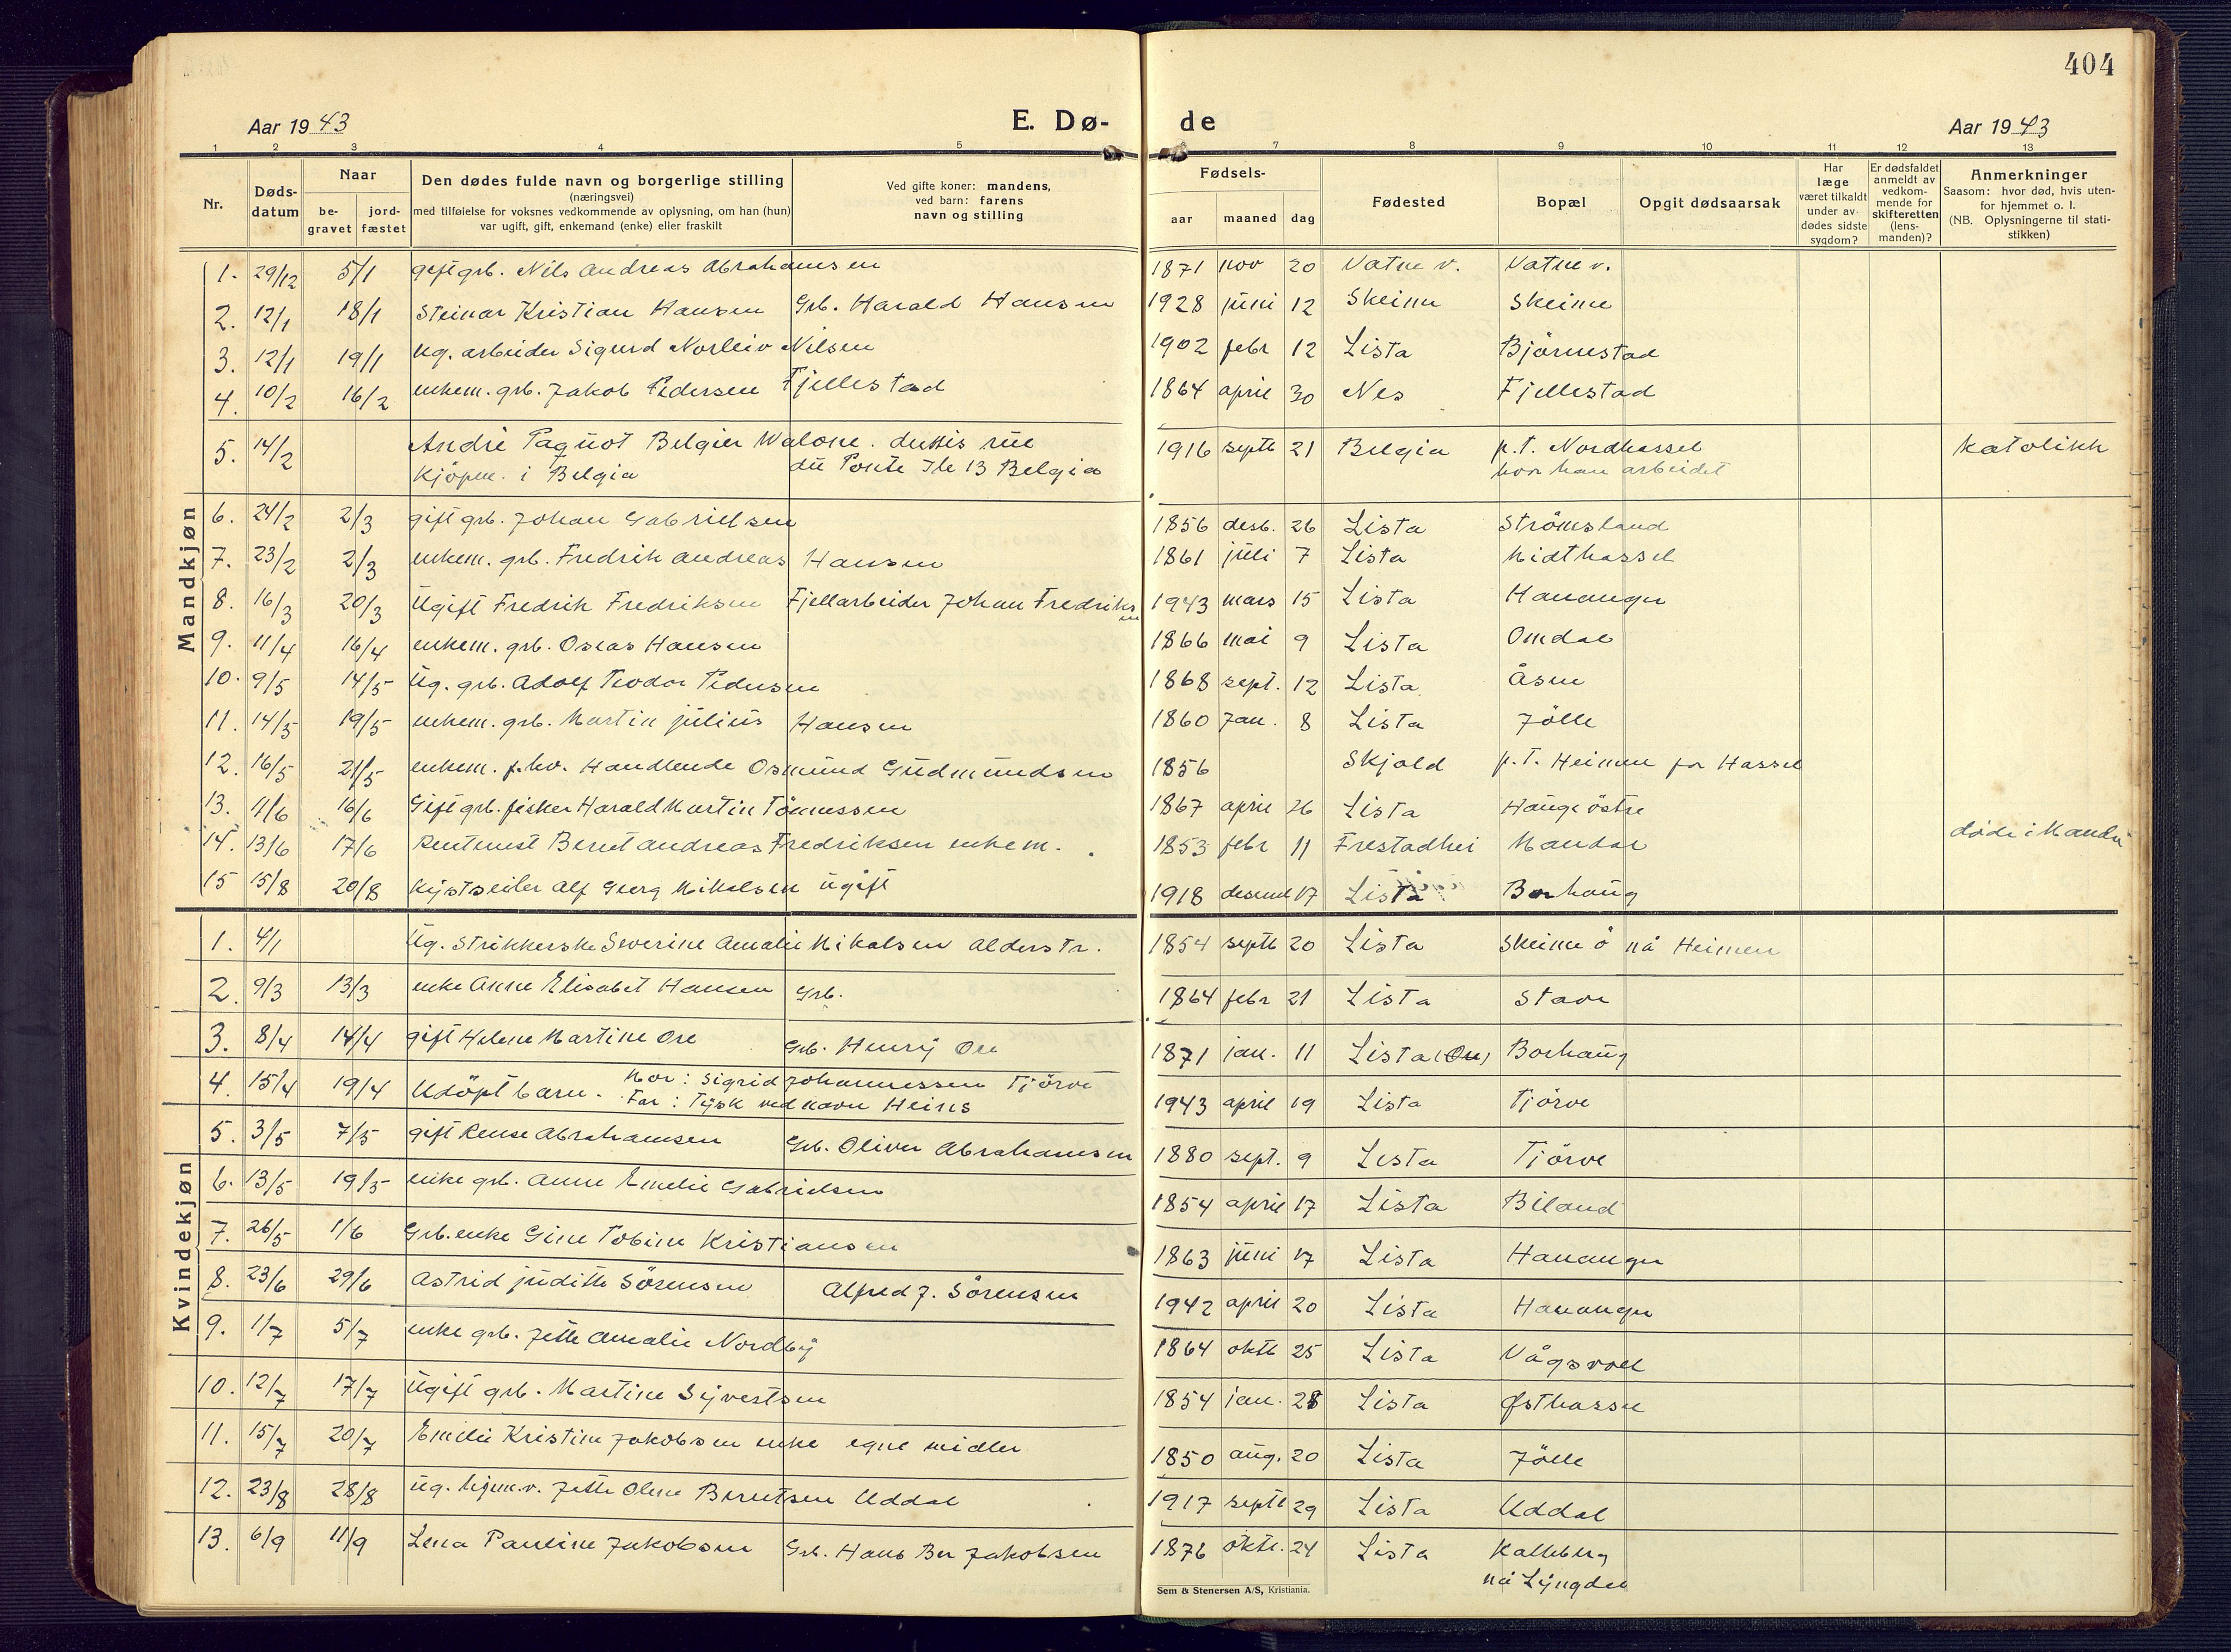 404
Aar 1943
E. Dø-
de
Aar 1943
1 2 3 4 5 6 7 8 9 10 11 12 13
Nr.
Døds-
datum
Naar
be-
gravet
jord-
fæstet
Den dødes fulde navn og borgerlige stilling
(næringsvei)
med tilføielse for voksnes vedkommende av oplysning, om han (hun)
var ugift, gift, enkemand (enke) eller fraskilt
Ved gifte koner: mandens,
ved barn: farens
navn og stilling
Fødsels-
aar maaned dag
Fødested
Bopæl
Opgit dødsaarsak
Har
læge
været tilkaldt
under av-
dødes sidste
sygdom?
Er dødsfaldet
anmeldt av
vedkom-
mende for
skifteretten
(lens-
manden)?
Anmerkninger
Saasom: hvor død, hvis uten-
for hjemmet o. l.
(NB. Oplysningerne til stati-
stikken)
Mandkjøn
1. 29/12 5/1 gift grb. Nils Andreas Abrahamsen 1871 nov 20 Vatne v. Vatne v.
2. 12/1 18/1 Steinar Kristian Hansen Grb. Harald Hansen 1928 juni 12 Skeime Skeime
3. 12/1 19/1 Ug. arbeider Sigurd Norleiv Nilsen 1902 febr 12 Lista Björnestad
4. 10/2 16/2 enkem. grb. Jakob Pedersen Fjellestad 1864 april 30 Nes Fjellestad
5. 14/2 André Paquot Belgier Walone. rue 1916 septb 21 Belgia p.t. Nordhassel katolikk
Kjöpm. i Belgia du Ponte 13 Belgia hvor han arbeidet
6. 24/2 2/3 gift grb. Johan Gabrielsen 1856 desb. 26 Lista Strömsland
7. 23/2 2/3 enkem. grb. Fredrik Andreas Hansen 1861 juli 7 Lista Midthassel
8. 16/3 20/3 Ugift Fredrik Fredriksen Fjellarbeider Johan Fredriksen 1943 mars 15 Lista Hananger
9. 11/4 16/4 enkem. grb. Oseas Hansen 1866 mai 9 Lista Omdal
10. 9/5 14/5 Ug. grb. Adolf Teodor Pedersen 1868 sept. 12 Lista Åsen
11. 14/5 19/5 enkem. grb. Martin Julius Hansen 1860 Jan. 8 Lista Jölle
12. 16/5 21/5 enkem. f.hv. Handlende Osmund Gudmundsen 1856 Skjold p.t. Heimen for Hassel
13. 11/6 16/6 Gift grb. fisker Harald Martin Tönnessen 1867 april 26 Lista Hauge östre
14. 13/6 17/6 Rentenist Bernt Andreas Fredriksen enkem. 1853 febr 11 Frestadhei Mandal döde i Mandal
15 15/8 20/8 Kystseiler Alf Georg Mikalsen ugift 1918 17 Lista Borhaug
Kvindekjøn
1. 4/1 Ug. Strikkerske Severine Amalie Mikalsen alderstr. 1854 septb 20 Lista Skeime ö nå Heimen
2. 9/3 13/3 enke Anne Elisabet Hansen Grb. 1864 febr 21 Lista Stave
3. 8/4 14/4 gift Helene Martine Ore Grb. Henry Ore 1871 jan. 11 Lista (Ore) Borhaug
4. 15/4 19/4 Udöpt barn. Mor: Sigrid Johannessen Tjörve 1943 april 19 Lista Tjörve
Far: Tysk ved navn Heins
5. 3/5 7/5 gift Rense Abrahamsen Grb. Oliver Abrahamsen 1880 sept. 9 Lista Tjörve
6. 13/5 19/5 enke grb. Anne Emelie Gabrielsen 1854 april 17 Lista Biland
7. 26/5 1/6 Grb. enke Gine Tobine Kristiansen 1863 juni 17 Lista Hananger
8. 23/6 29/6 Astrid Judith Sörensen Alfred J. Sörensen 1942 april 20 Lista Hananger
9. 1/7 5/7 enke grb. Jette Amalie Nordby 1864 oktb 25 Lista Vågsvoll
10. 12/7 17/7 Ugift grb. Martine Syvertsen 1854 jan. 28 Lista Østhassel
11. 15/7 20/7 Emilie Kristine Jakobsen enke egne midler 1850 aug. 20 Lista Jölle
12. 23/8 28/8 Ug. hjem.v. Jette Olene Berntsen Uddal 1917 septb 29 Lista Uddal
13. 6/9 11/9 Lena Pauline Jakobsen Grb. Hans Ber Jakobsen 1876 oktb. 24 Lista Kalleberg
nå Lyngdal
Sem & Stenersen A/S, Kristiania.